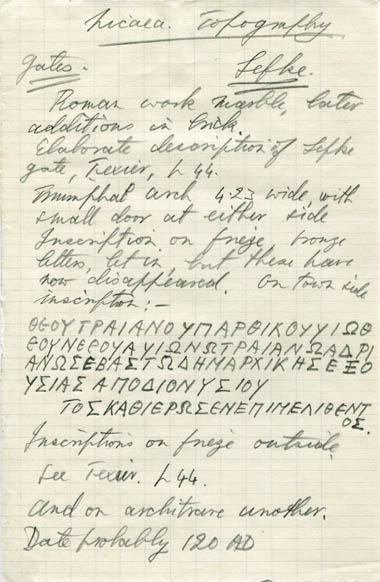 Nicaea. Topography
Gates. Lefke.
Roman work marble, later
additions in brick.
Elaborate description of Lefke
gate, Texier, L 44.
Triumphal arch 4.23 wide, with
small door at either side
Inscription on frieze, bronze
letters, let in, but these have
now disappeared. On town side
inscription:-
ΘΕΟΥΤΡΑΙΑΝΟΥΠΑΡΘΙΚΟΥΥΙΩΘ
ΕΟΥΝΕΡΟΥΑΥΙΩΝΩΤΡΑΙΑΝΩΑΔΡΙ
ΑΝΩΣΕΒΑΣΤΩΔΗΜΑΡΧΙΚΗΣΕΞΟ
ΥΣΙΑΣ ΑΠΟΔΙΟΝΥΣΙΟΥ
ΤΟΣΚΑΘΙΕΡΩΣΕΝΕΠΙΜΕΛΙΘΕΝΤ
ΟΣ.
Inscriptions on frieze outside.
See Texier. L 44.
And on architrave another.
Date probably 120 AD